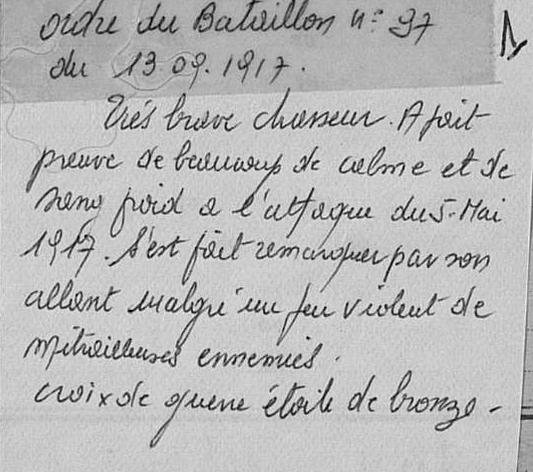 ordre du Bataillon n: 97
du 13.09.1917.
Trés brave chasseur. A fait
preuve de beaucoup de calme et de
sang froid a l'attaque du 5-Mai
1917. S'est fait remarquer par son
allant malgré un feu violent de
mitrailleuses ennemies.
croix de guerre étoile de bronze -